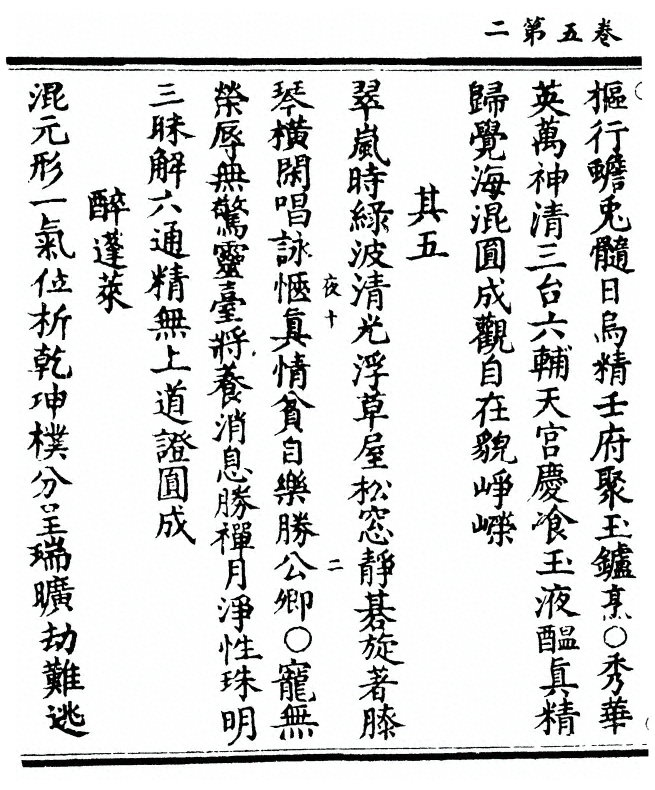 卷五第二
樞行蟾兎髓日烏精壬府聚玉鑪烹○秀華
英萬神清三台六輔天宮慶飡玉液醖眞精
歸覺海混圓成觀自在貌崢嶸
其五
翠嵐時綠波清光浮草屋松窓靜碁旋著膝
琴橫閑唱詠愜眞情貧自樂勝公卿○寵無
夜十
二
榮辱無驚靈臺將養消息勝禪月淨性珠明
三昧解六通精無上道證圓成
醉蓬萊
混元形一氣位析乾坤樸分呈瑞曠劫難逃